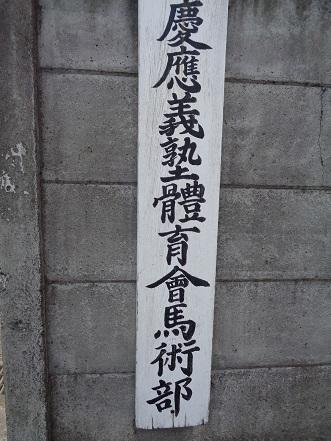 慶應義塾體育會馬術部